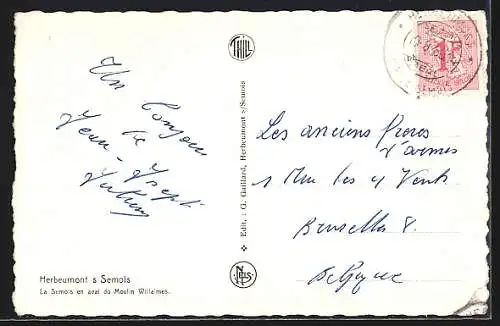 THILL
Un Bonjour
de
Jean-Joseph
Les anciens Frères
d'armes
1 Rue des 4 Vents
Bruxelles 8.
Belgique
Edit. : G. Gaillard, Herbeumont s/Semois
NELS
Herbeumont s Semois
La Semois en aval du Moulin Willaimes.
1F